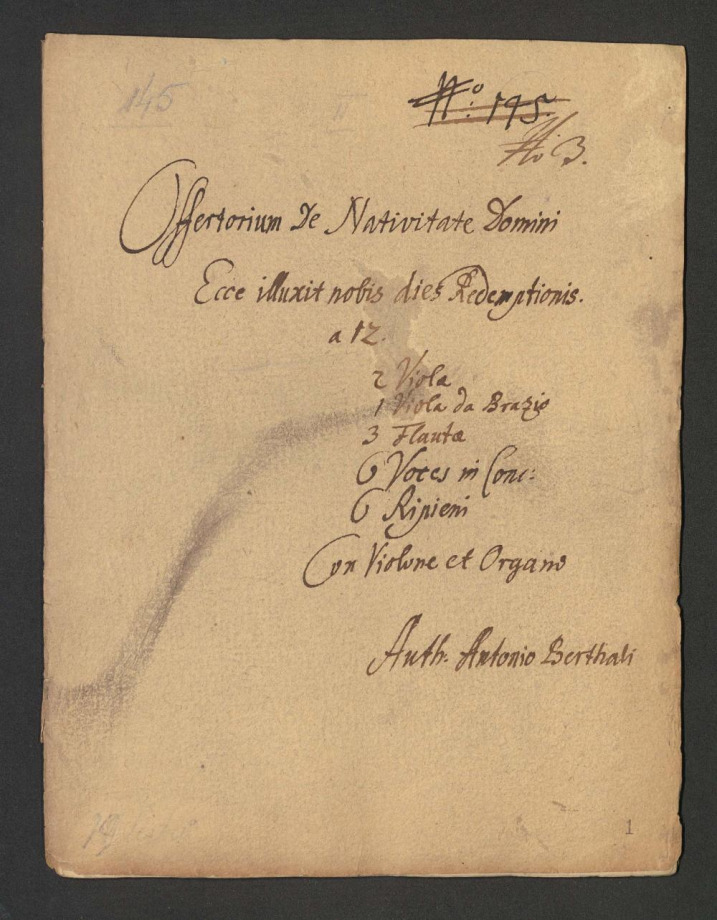 145
No. 195.
No 3.
Offertorium De Nativitate Domini
Ecce illuxit nobis dies Redemptionis.
a 12.
2 Viola
1 Viola da Brazio
3 Flautæ
6 Voces in Conc:
6 Ripieni
Con Violone et Organo
Auth. Antonio Berthali
1